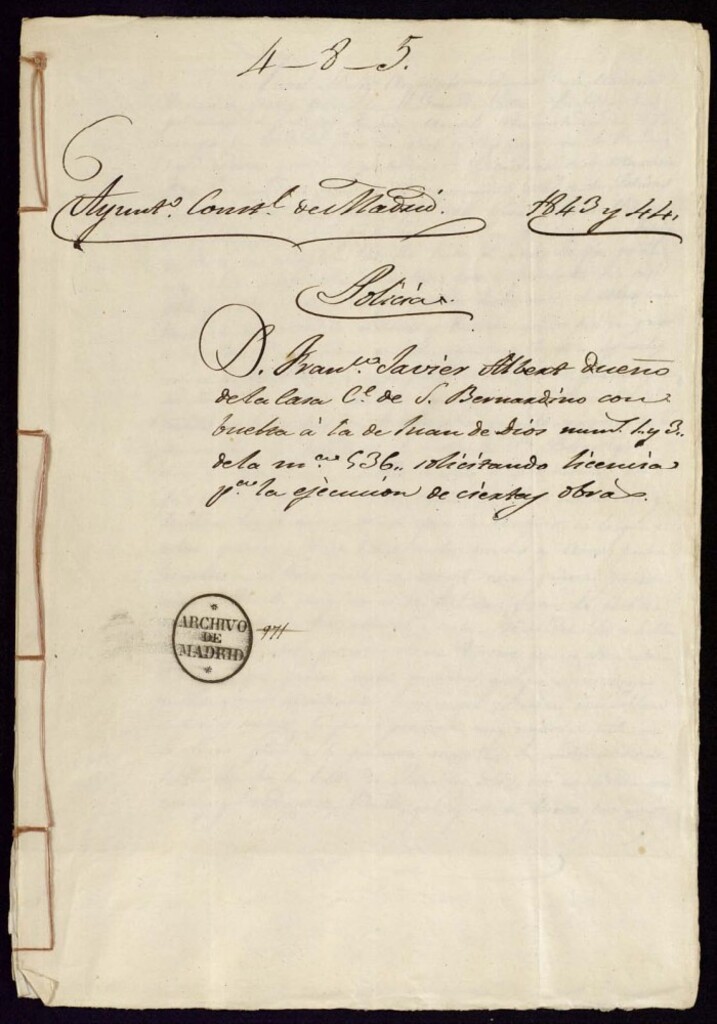 4-8-5.
Ayunto. Constl. de Madrid. 1843 y 44.
Policia.
D. Franco. Javier Albert dueño
de la Casa Ce. de S. Bernardino con
buelta á la de Juan de Dios nums. 1. y 3.
de la mna. 536., solicitando licencia
pa. la ejecucion de ciertas obras.
ARCHIVO
DE
MADRID